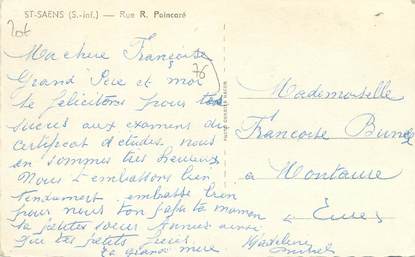 ST-SAENS (S.-Inf.) — Rue R. Poincaré
Ma chère Françoise
76
Grand Père et moi
te félicitons pour ton
succès aux examens du
Certificat d'études. nous
en sommes très heureux
Nous t'embrassons bien
tendrement. embrasse bien
pour nous ton papa ta maman
ta petite soeur Annie ainsi
que tes petits frères.
Ta grand mère
Mademoiselle
Françoise
à
Eure